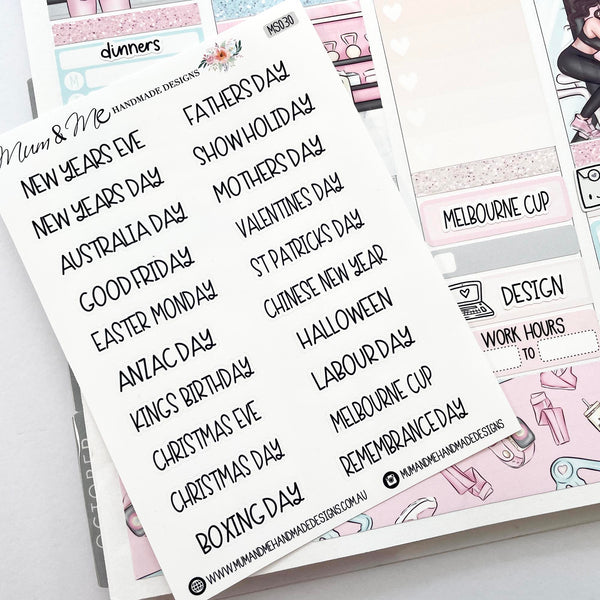 dinners
M
MS030
Mum & Me HANDMADE DESIGNS
NEW YEARS EVE
NEW YEARS DAY
AUSTRALIA DAY
GOOD FRIDAY
EASTER MONDAY
ANZAC DAY
KINGS BIRTHDAY
CHRISTMAS EVE
CHRISTMAS DAY
BOXING DAY
FATHERS DAY
SHOW HOLIDAY
MOTHERS DAY
VALENTINES DAY
ST PATRICKS DAY
CHINESE NEW YEAR
HALLOWEEN
LABOUR DAY
MELBOURNE CUP
REMEMBRANCE DAY
WWW.MUMANDMEHANDMADEDESIGNS.COM.AU
MUMANDMEHANDMADEDESIGNS
MELBOURNE CUP
DESIGN
WORK HOURS
TO
OCTOBER